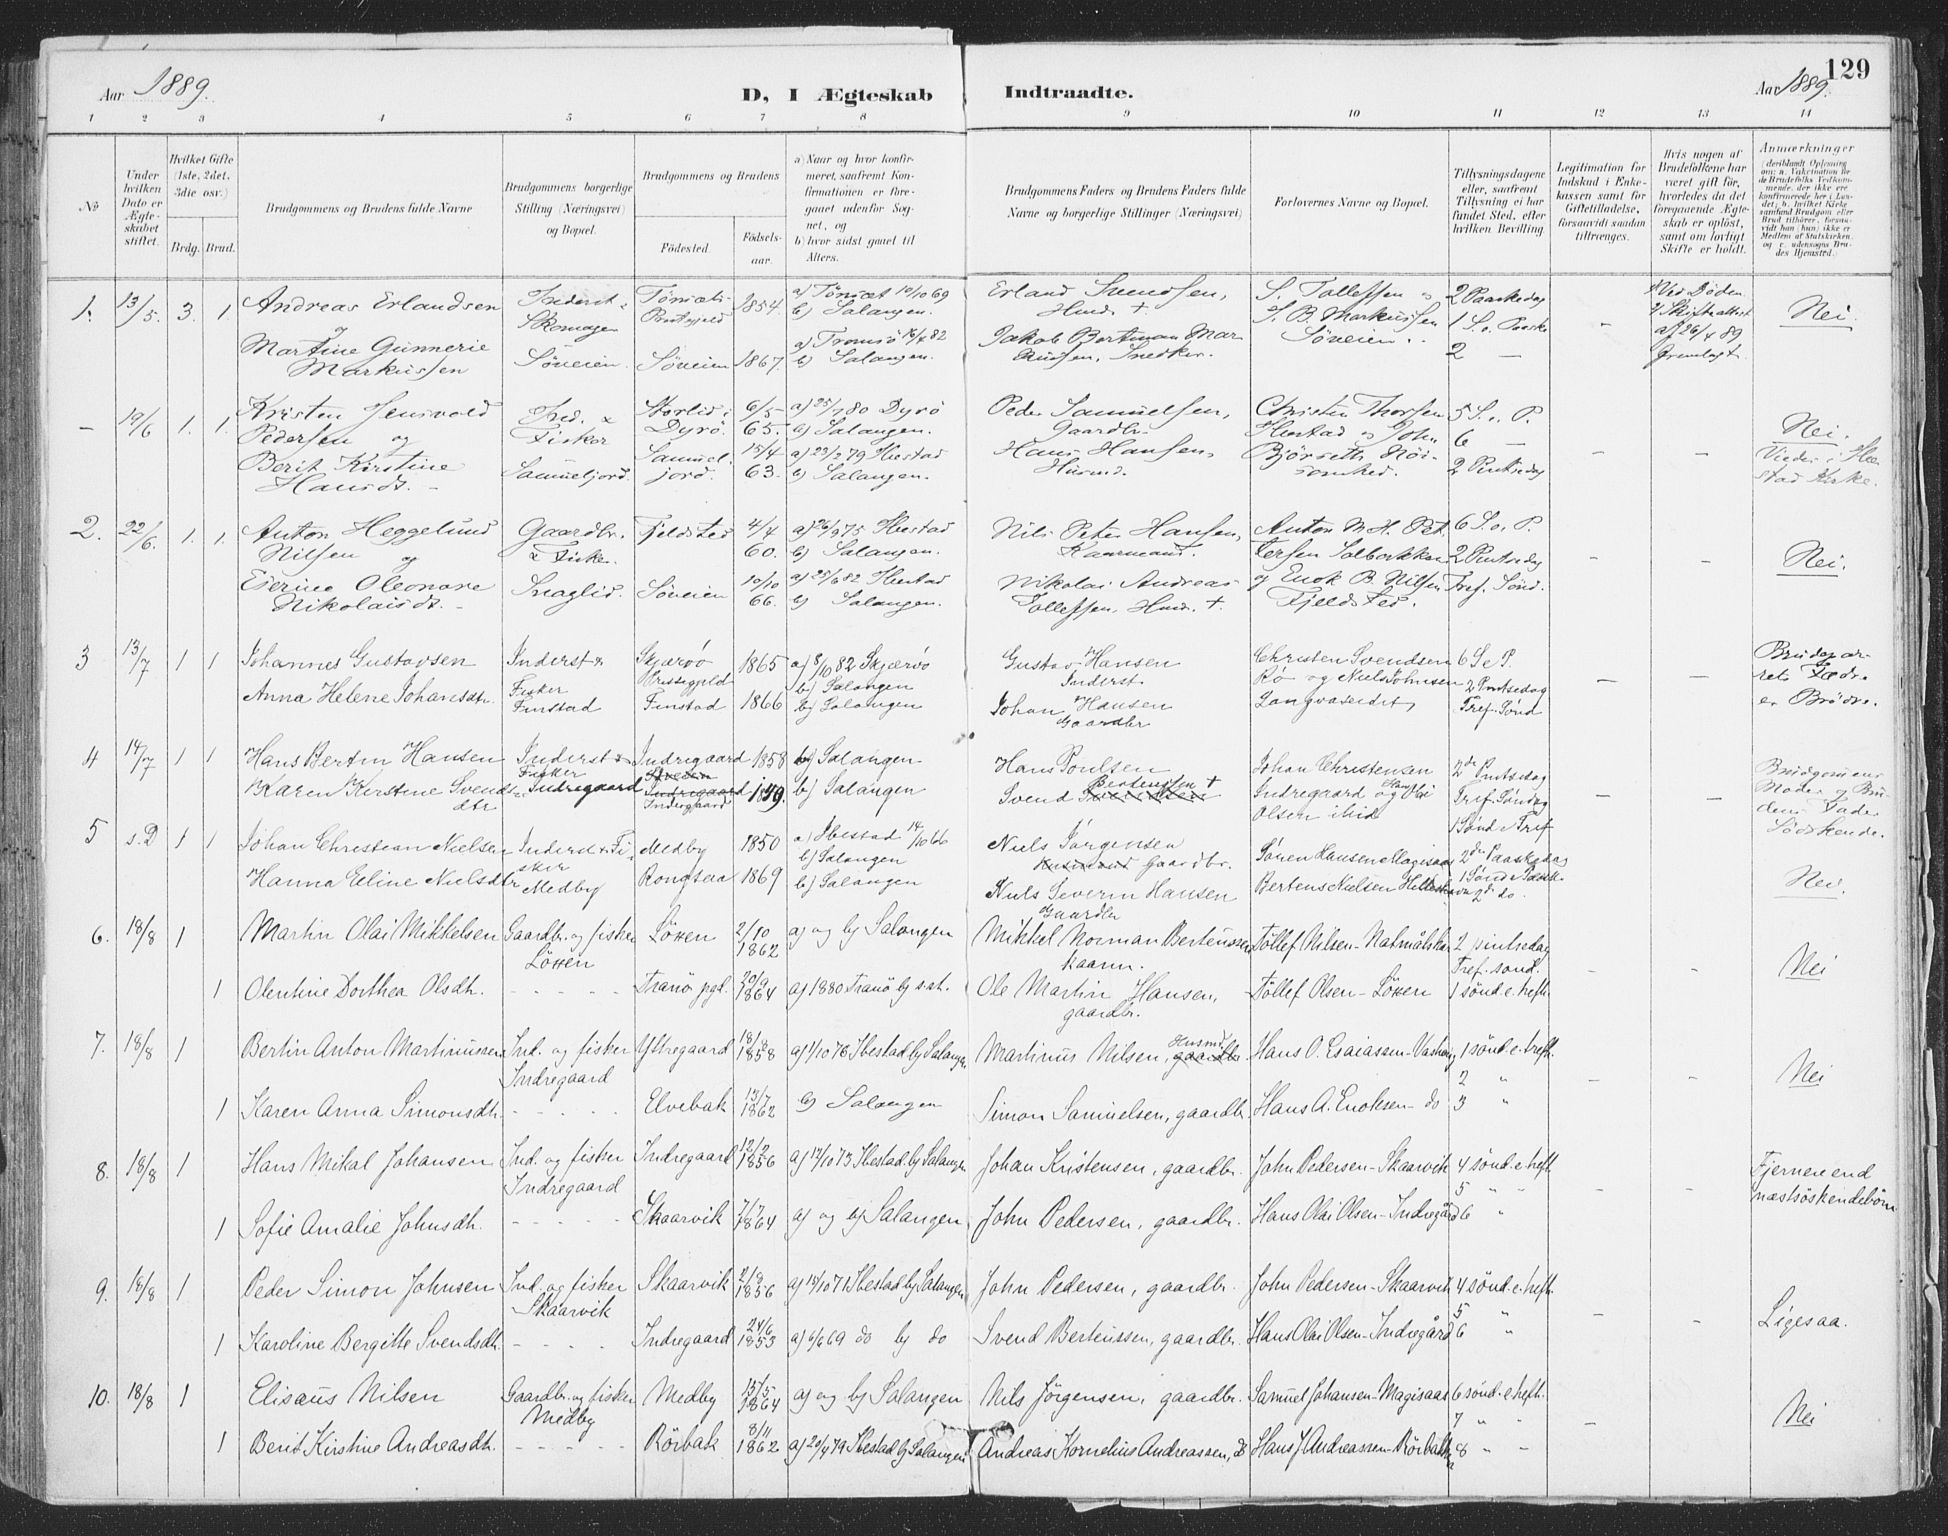 Aar 1889.
D, I Ægteskab Indtraadte.
Aar 1889.
129
1 2 3 4 5 6 7 8 9 10 11 12 13 14
No
Under hvilken Dato er Ægteskabet stiftet.
Hvilket Gifte (1ste, 2det, 3die osv.)
Brdg. Brud.
Brudgommens og Brudens fulde Navne
Brudgommens borgerlige Stilling (Næringsvei) og Bopæl.
Brudgommens og Brudens
Fødested. Fødselsaar.
a) Naar og hvor konfirmeret, saafremt Konfirmationen er foregaaet udenfor Sognet, og
b) hvor sidst gaaet til Alters.
Brudgommens Faders og Brudens Faders fulde Navne og borgerlige Stillinger (Næringsvei)
Forlovernes Navne og Bopæl.
Tillysningsdagene eller, saafremt Tillysning ei har fundet Sted, efter hvilken Bevilling.
Legitimation for Indskud i Enkekassen samt for Giftetilladelse, forsaavidt saadan tiltrænges.
Hvis nogen af Brudefolkene har været gift før, hvorledes da det foregaaende Ægteskab er opløst, samt om lovligt Skifte er holdt.
Anmærkninger
1. 13/5. 3. 1 Andreas Erlandsen Inderst & Skomager Præstegjeld 1854. a) 10/10 69 b) Salangen. Erland Svendsen, Husm. + S. Tollefsen og 2 Paaskedag Ved Døden Nei.
og
Martine Gunnerie Markussen Søveien. Søveien 1867. a) Tromsø 16/4 82 b) Salangen. Jakob Bertman Markussen, Snedker. S. B. Markussen Søveien. 1 S. e. Paaske 2 — af 26/4 89 fremlagt
— 19/6 1. 1. Kristen Jensvold Pedersen og Ind. & Fisker Storlid i Dyrø. 6/5 65. a) 25/7 80 Dyrø b) Salangen. Peder Samuelsen, Gaardbr. Christen Thorsen Ibestad og John 5 S. e. P. 6 — Nei.
Berit Kirstine Hansdt. — Samueljord. Samueljord. 15/4 63. a) 23/2 79 Ibestad b) Salangen. Hans Hansen, Husmd. Bjørseth 2 Pintsedag Viedes i Ibestad Kirke.
2. 22/6. 1. 1. Anton Heggelund Nilsen og Gaardbr. & Fisker Fjeldsted 4/4 60. a) 26/9 75 Ibestad b) Salangen. Nils Peter Hansen, Kaarmand. Anton M. H. Pettersen Solbakken 6 S. e. P. 2 Pintsedag Nei.
Eserine Oleonore Nikolaisdt. — Snaglid. Søveien 10/10 66. a) 25/6 82 Ibestad b) Salangen. Nikolai Andreas Tollefsen, Husm. + og Enok B. Nilsen Fjeldsted. Tref. Sønd.
3 13/7 1 1 Johannes Gustavsen Inderst & Fisker Skjærvø Præstegjeld 1865 a) 8/10 82 Skjærvø b) Salangen Gustav Hansen Inderst Christen Svendsen Rø og Niels Johnsen 6 S e P. Brudeparrets Fædre er Brødre.
Anna Helene Johansdtr. Finstad Finstad 1866 b) Salangen Johan Hansen Gaardbr Langvaseidet, 2 Pintsedag Tref. Sønd
4 14/7 1 1 Hans Bertin Hansen Inderst & Fisker Indregaard 1858 b) Salangen Hans Poulsen Johan Christensen 2den Pintsedag Brudgommens Moder og Brudens Fader Sødskende.
Karen Kirstine Svendsdtr Indregaard Indregaard 1859. b) Salangen Svend Berteussen + Indregaard og Hans Olai Olsen ibid Tref. Søndag 1 Sønd e Tref
5 s. D 1 1 Johan Christean Nielsen Inderst & Fisker Medby 1850 a) Ibestad 14/10 66 b) Salangen Niels Jørgensen Gaardbr. Søren Hansen Magisaas 2den Paaskedag Nei.
Hanna Eeline Nielsdtr Medby Rongsaa 1869 b) Salangen Niels Severin Hansen Gaardbr Bertens Nielsen 1 Sønd e Paask. 2d do.
6. 18/8 1 Martin Olai Mikkelsen Gaardbr. og fisker Løxen Løxen 2/10 1862 a) og b) Salangen Mikkel Norman Berteussen kaarm. Töllef Nilsen 2 pintsedag Tref. sønd. Nei
1 Olentine Dorthea Olsdtr. - - - - - Tranö pgl. 20/9 1864 a) 1880 Tranö b) s. st. Ole Martin Hansen, gaardbr. Töllef Olsen - Løxen 1 sönd. e. trefh.
7. 18/8 1 Bertin Anton Martinussen Ind. og fisker Indregaard Ystregaard 18/8 1858 a) 1/10 76 Ibestad b) Salangen Martinus Nilsen, Husmd Hans O. Esaiassen - 1 sönd. e. trefh. 2 " Nei
1 Karen Anna Simonsdtr. - - - - - Elvebak 13/7 1862 b) Salangen Simon Samuelsen, gaardbr. Hans A. Enoksen - do 3 "
8. 18/8 1 Hans Mikal Johansen Ind. og fisker Indregaard Indregaard 12/2 1856 a) 12/10 73 Ibestad. b) Salangen Johan Kristensen, gaardbr. John Pedersen - Skaarvik 4 sönd. e. trefh. 5 " " Fjernere end næstsöskendebörn
1 Sofie Amalie Johnsdtr. - - - - - Skaarvik 7/7 1864 a) og b) Salangen John Pedersen, gaardbr. Hans Olai Olsen - Indregård 6 "
9. 18/8 1 Peder Simon Johnsen Ind. og fisker Skaarvik Skaarvik 2/9 1856 a) 15/10 71 Ibestad b) Salangen John Pedersen, gaardbr. John Pedersen - Skaarvik 4 sönd. e. trefh. 5 " Ligesaa.
1 Karoline Bergitte Svendsdtr. - - - - Indregaard 24/6 1853 a) 6/6 69 do b) do Svend Berteussen, gaardbr. Hans Olai Olsen - Indregård 6 "
10. 18/8 1 Elisæus Nilsen Gaardbr. og fisker Medby Medby 15/5 1864 a) og b) Salangen Nils Jörgensen, gaardbr. Samuel Johansen - Magisaas 6 sönd. e. trefh. 7 " " Nei
1 Berit Kirstine Andreasdtr. - - - - - Rörbak 8/11 1862 a) 20/4 79 Ibestad b) Salangen Andreas Kornelius Andreassen, do Hans J Andreassen - Rörbakken 8 " -